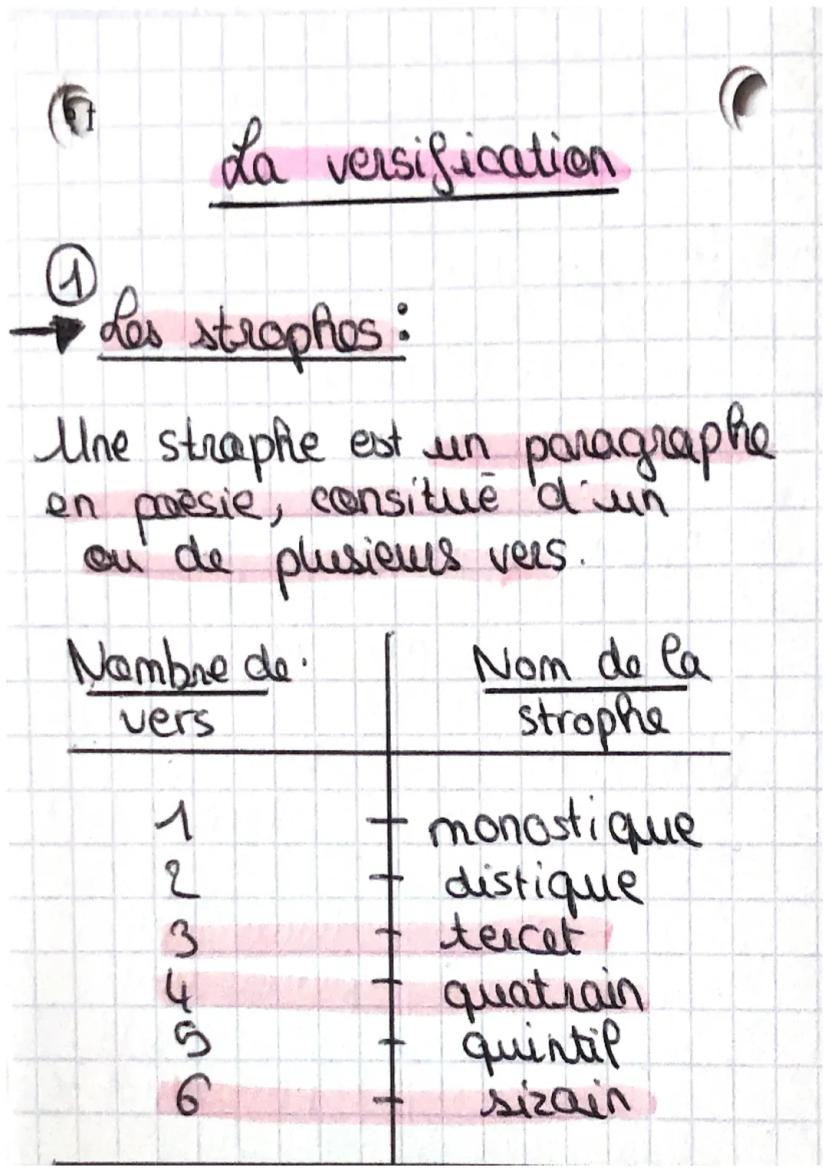 La versification
1
→ Les strophes :
Une strophe est un paragraphe
en poésie, consitué d'un
ou de plusieurs vers.
Nombre de vers | Nom de la strophe
1 monostique
2 distique
3 tercet
4 quatrain
5 quintil
6 sizain